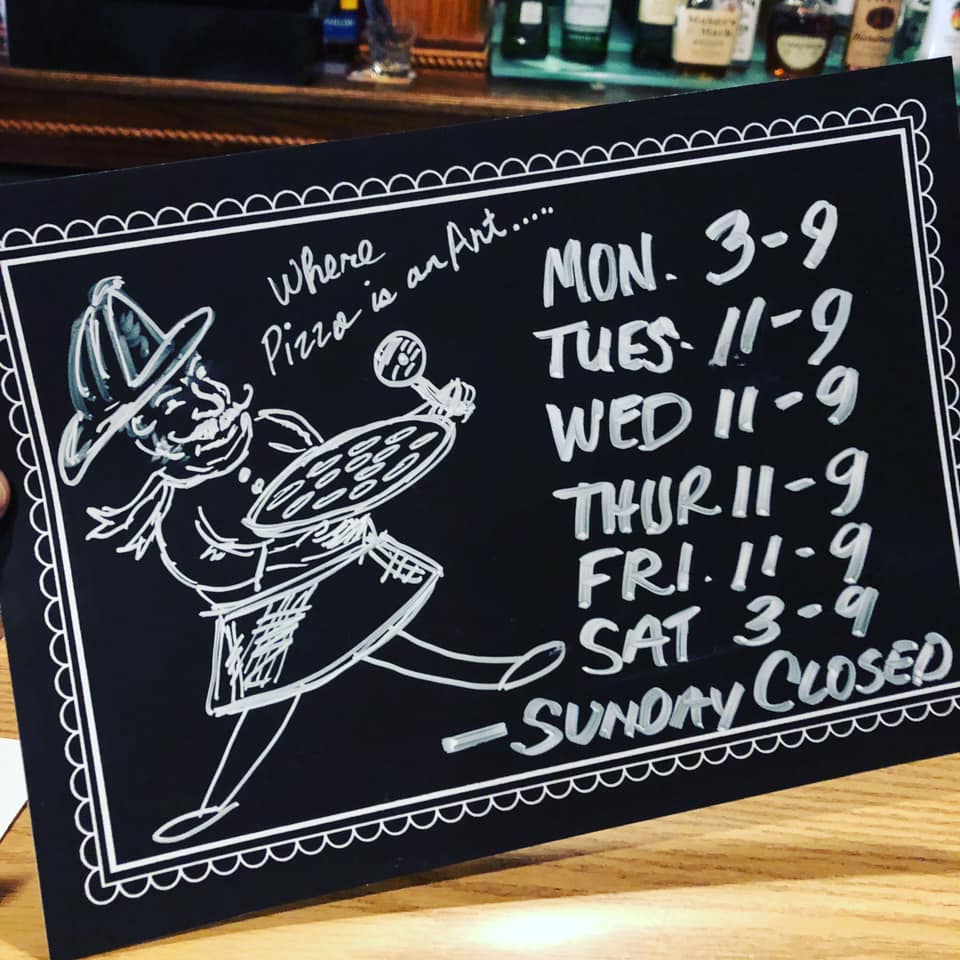 Where
Pizza is an Art.....
MON. 3-9
TUES. 11-9
WED 11-9
THUR 11-9
FRI. 11-9
SAT 3-9
- SUNDAY CLOSED
Maker's
Mark